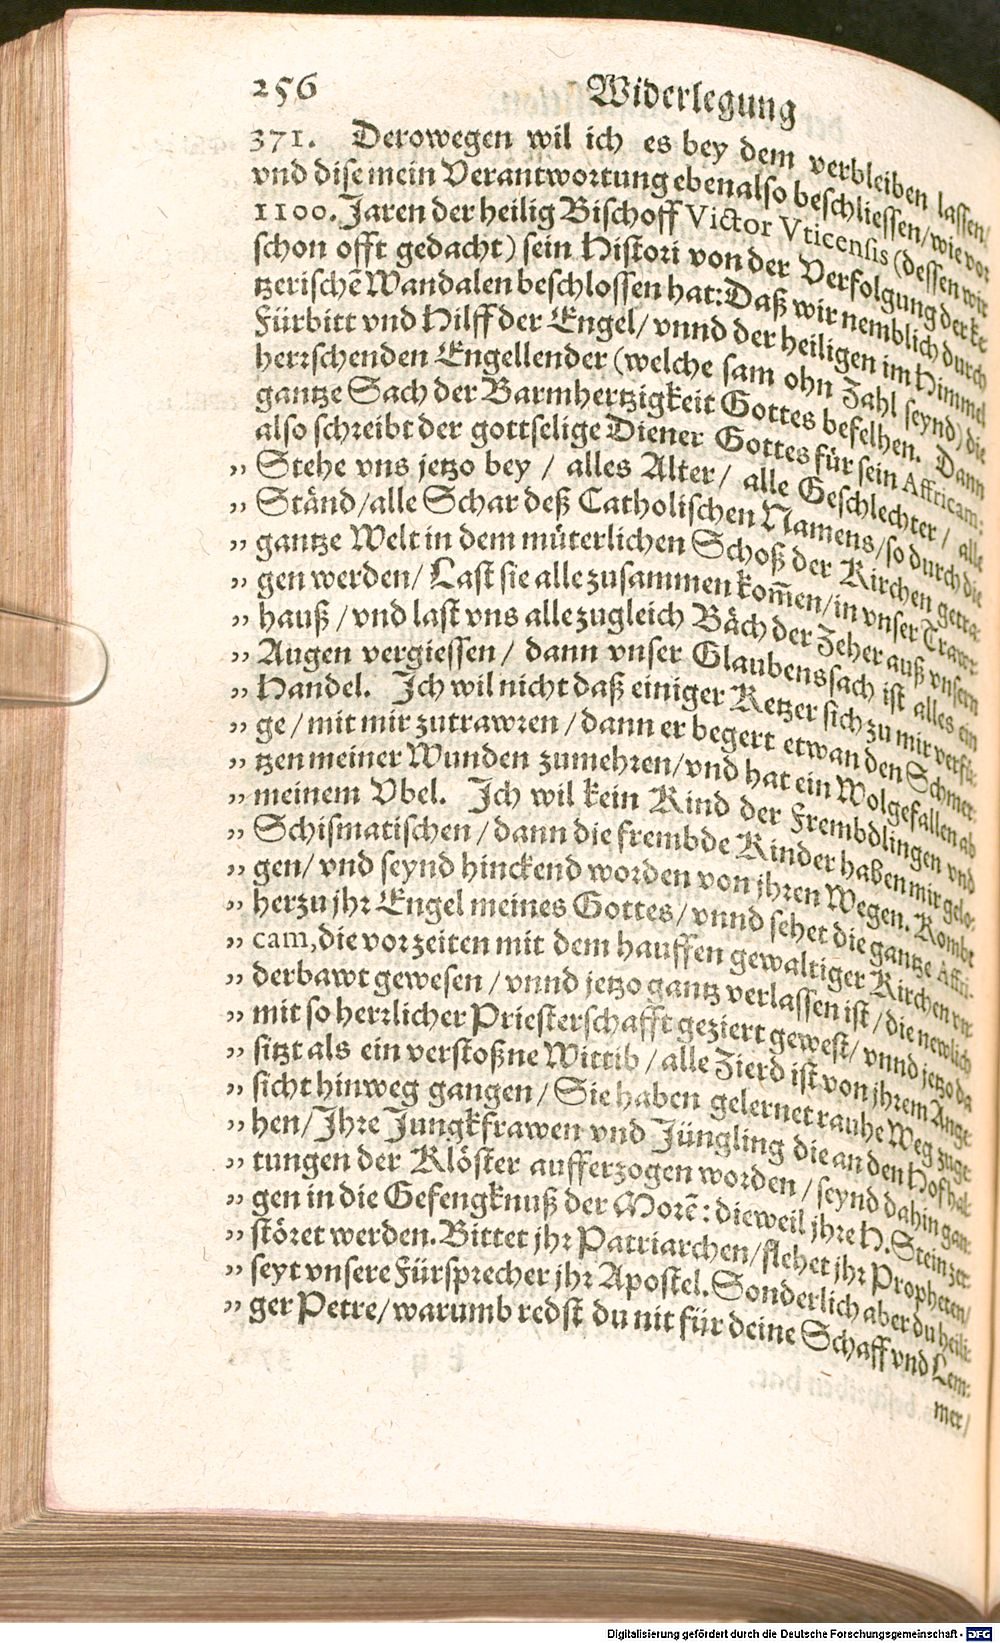 256 Widerlegung
371. Derowegen wil ich es bey dem verbleiben lassen/
vnd dise mein Verantwortung eben also beschliessen/ wie vor
1100. Jaren der heilig Bischoff Victor Vticensis (dessen wir
schon offt gedacht) sein Histori von der Verfolgung der Ke-
tzerischē Wandalen beschlossen hat: Daß wir nemblich durch
Fürbitt vnd Hilff der Engel/ vnnd der heiligen im Himmel
herrschenden Engellender (welche sam ohn Zahl seynd) die
gantze Sach der Barmhertzigkeit Gottes befelhen. Dann
also schreibt der gottselige Diener Gottes für sein Affricam:
„ Stehe vns jetzo bey / alles Alter/ alle Geschlechter / alle
„ Ständ/alle Schar deß Catholischen Namens/so durch die
„ gantze Welt in dem müterlichen Schoß der Kirchen getra-
„ gen werden/ Last sie alle zusammen kom̄en/in vnser Trawr
„ hauß / vnd last vns alle zugleich Bäch der Zeher auß vnsern
„ Augen vergiessen/ dann vnser Glaubenssach ist alles ein
„ Handel. Ich wil nicht daß einiger Ketzer sich zu mir verfü-
„ ge/ mit mir zutrawren / dann er begert etwan den Schmer-
„ tzen meiner Wunden zumehren/vnd hat ein Wolgefallen ab
„ meinem Vbel. Ich wil kein Kind der Frembdlingen vnd
„ Schismatischen / dann die frembde Kinder haben mir gelo-
„ gen/ vnd seynd hinckend worden von jhren Wegen. Kombt
„ herzu jhr Engel meines Gottes/ vnnd sehet die gantze Affri-
„ cam, die vor zeiten mit dem hauffen gewaltiger Kirchen vn-
„ derbawt gewesen / vnnd jetzo gantz verlassen ist / die newlich
„ mit so herrlicher Priesterschafft geziert gewest/ vnnd jetzo da
„ sitzt als ein verstoßne Wittib / alle Zierd ist von jhrem Ange-
„ sicht hinweg gangen / Sie haben gelernet rauhe Weg zuge-
„ hen/ Ihre Jungkfrawen vnd Jüngling die an den Hofhal-
„ tungen der Klöster aufferzogen worden / seynd dahin gan-
„ gen in die Gefengknuß der Morē: dieweil jhre H. Stein zer-
„ störet werden. Bittet jhr Patriarchen/ flehet jhr Propheten/
„ seyt vnsere Fürsprecher jhr Apostel. Sonderlich aber du heili-
„ ger Petre/ warumb redst du nit für deine Schaff vnd Lem-
mer/
Digitalisierung gefördert durch die Deutsche Forschungsgemeinschaft - DFG